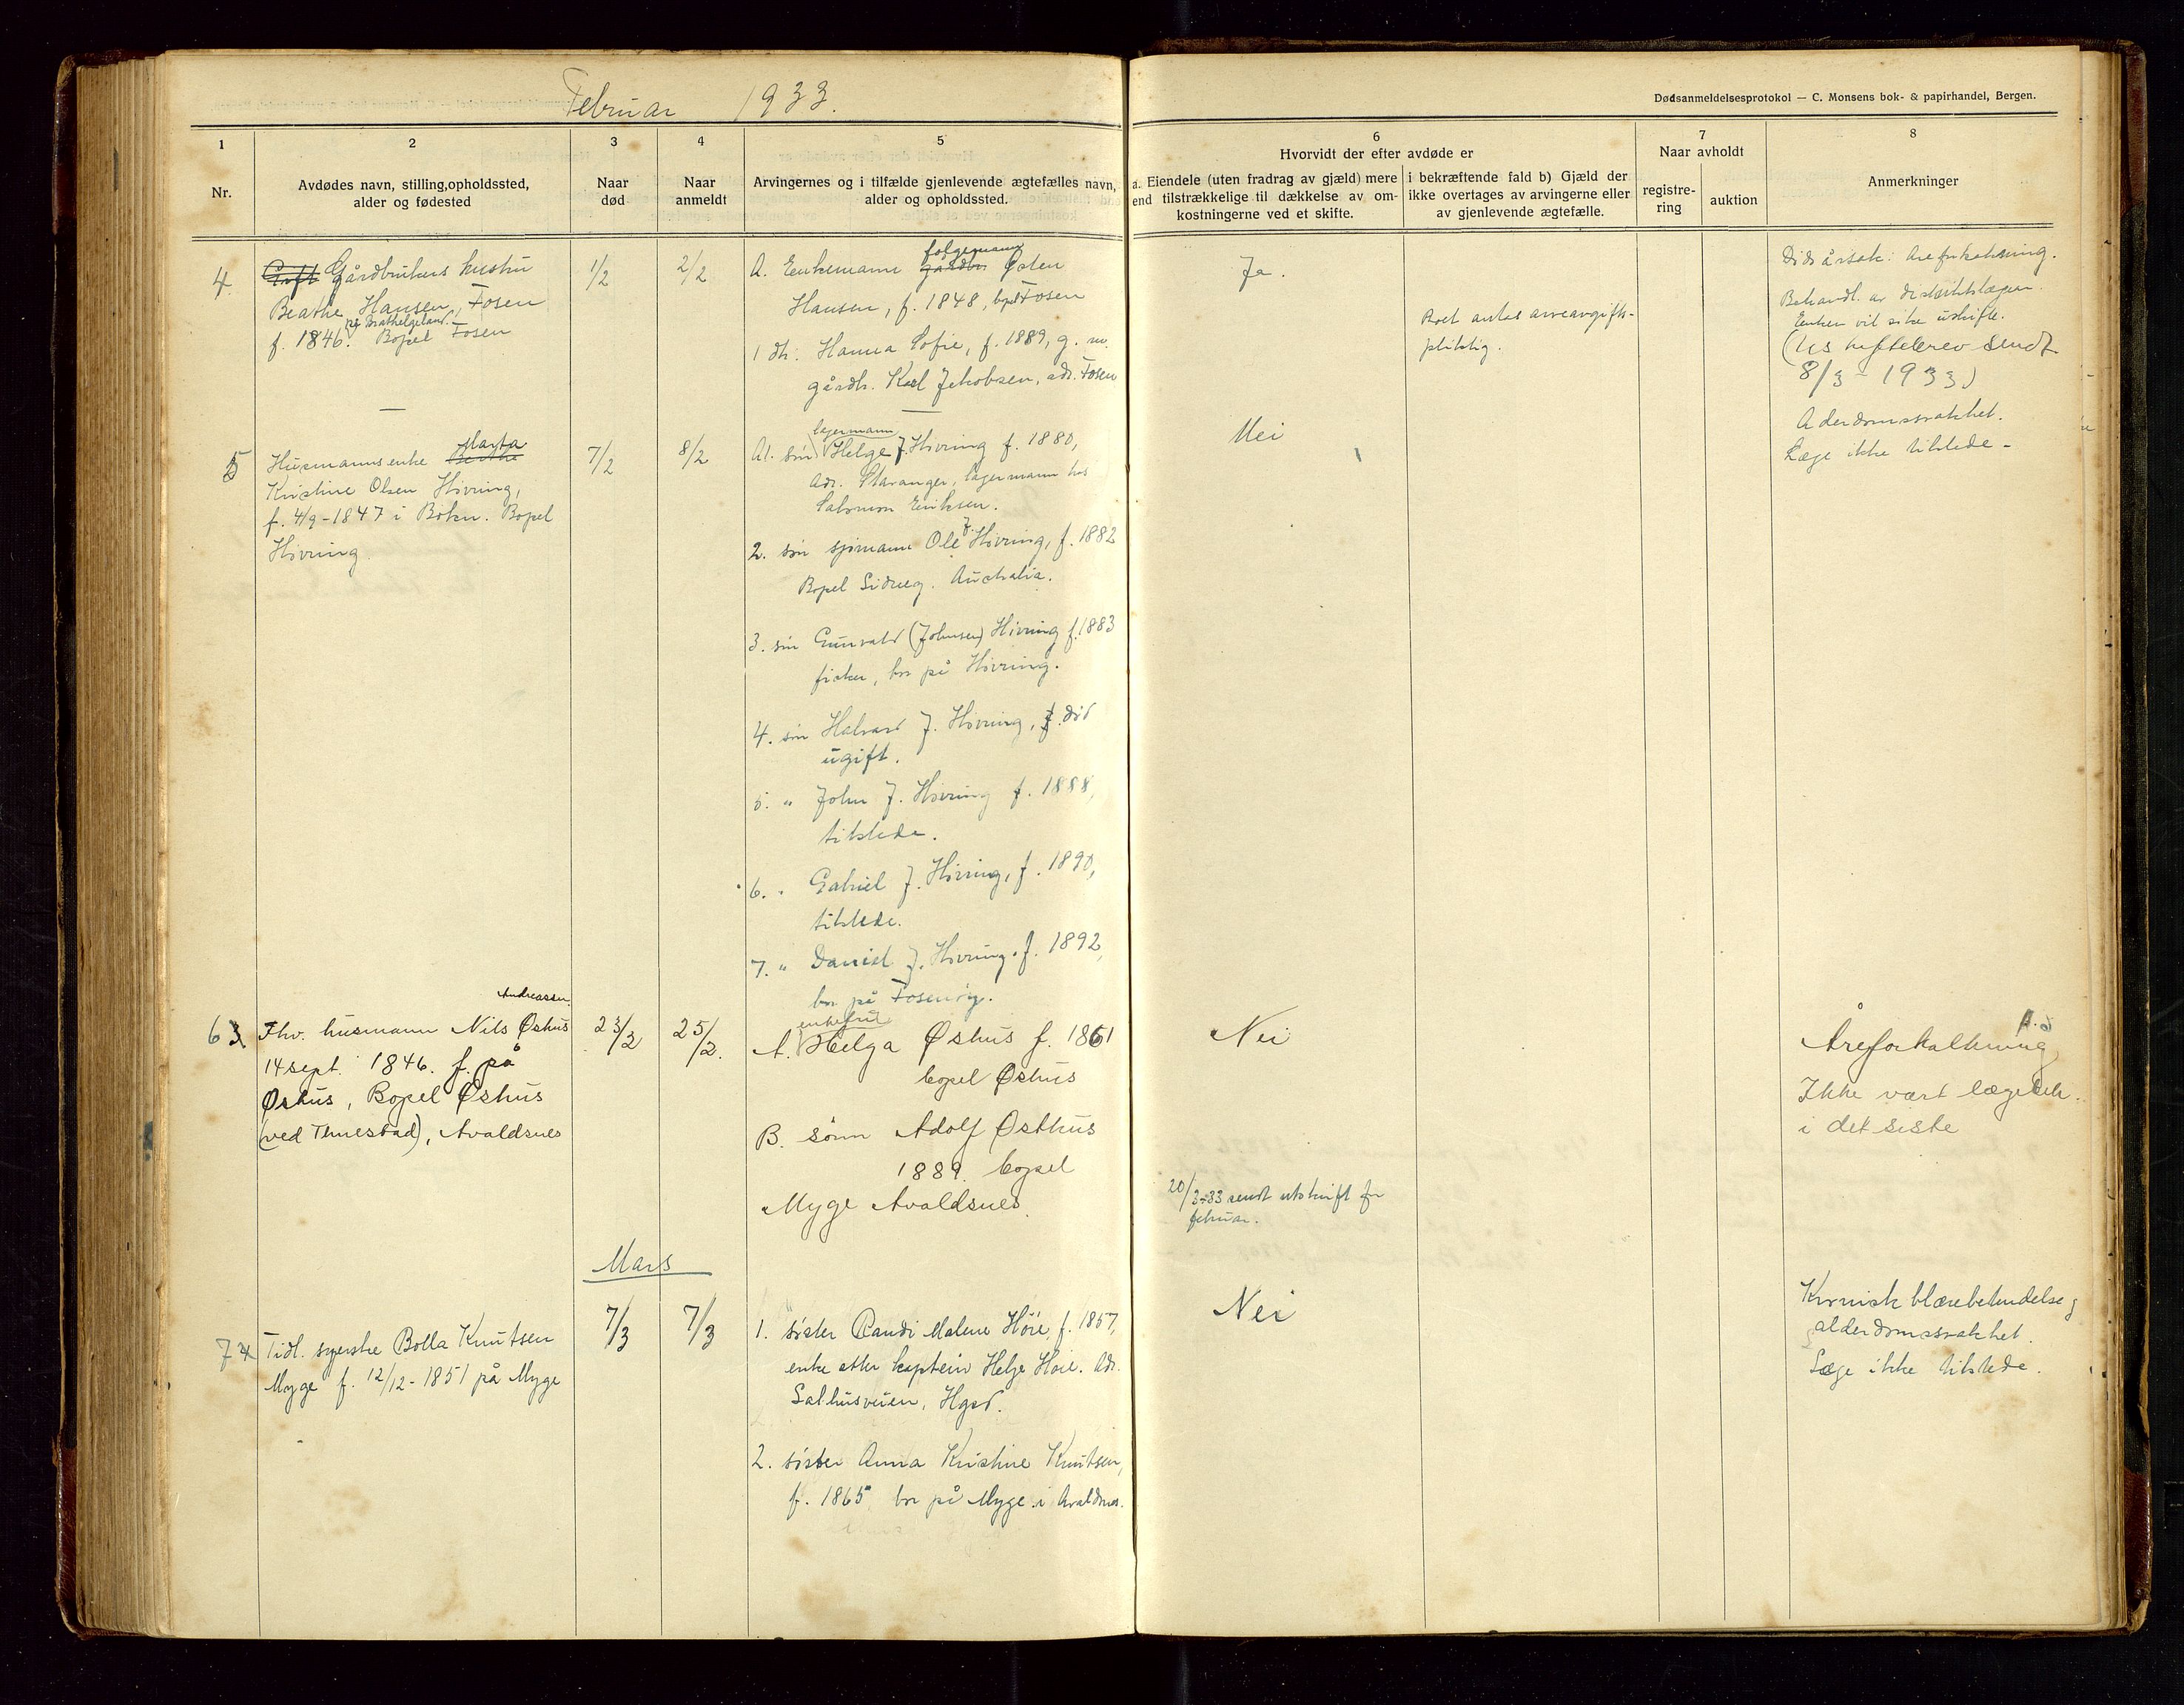 Februar 1933.
Dødsanmeldelsesprotokol — C. Monsens bok- & papirhandel, Bergen.
1
Nr.
2
Avdødes navn, stilling, opholdssted,
alder og fødested
3
Naar
død
4
Naar
anmeldt
5
Arvingernes og i tilfælde gjenlevende ægtefælles navn,
alder og opholdssted.
6
Hvorvidt der efter avdøde er
a. Eiendele (uten fradrag av gjæld) mere
end tilstrækkelige til dækkelse av om-
kostningerne ved et skifte.
i bekræftende fald b) Gjæld der
ikke overtages av arvingerne eller
av gjenlevende ægtefælle.
7
Naar avholdt
registre-
ring
auktion
8
Anmerkninger
4
Gårdbrukers hustru
Beathe Hansen, Fosen
f. 1846. Bopel Fosen
1/2
2/2
A. Enkemann folgemann Østen
Hansen, f. 1848, bopel Fosen
1 dtr. Hanna Sofie, f. 1889, g. m.
gårdbr. Karl Jakobsen, adr. Fosen
Ja.
Boet antas arveavgifts-
pliktig.
Dødsårsak: Areforkalkning.
Behandl. av distriktslægen.
Enken vil sitte i uskifte.
8/3 - 1933)
5
Husmannsenke Marta
Kristine Olsen Høvring,
f. 4/9-1847 i Bokn. Bopel
Høvring.
7/2
8/2
A1. søn lagermann Helge J. Høvring f. 1880,
Adr. Stavanger, lagermann hos
Salomon Eriksen.
2. søn sjømann Ole J. Høvring, f. 1882
Bopel Sidney. Australia.
3. søn Gunvald (Johnsen) Høvring f. 1883
fisker, bor på Høvring.
4. søn Halvard J. Høvring, død
ugift.
5. " John J. Høvring f. 1888,
tilstede.
6. " Gabriel J. Høvring, f. 1890,
tilstede.
7. " Daniel J. Høvring. f. 1892,
bor på Fosenøy.
Nei
Alderdomssvakhet.
Læge ikke tilstede -
6
Andreassen.
Fhv. husmann Nils Øshus
14 sept. 1846. f. på
Øshus, Bopel Øshus
(ved Thuestad), Avaldsnes
23/2
25/2.
enkefru
A. Helga Øshus f. 1861
bopel Øshus
B. sønn Adolf Østhus
1889. bopel
Myge Avaldsnes.
Nei
20/3-33 sendt utskrift for
februar.
Åreforkalkning
Ikke vært lægebeh.
i det siste
Mars
7
Tidl. syerske Bolla Knutsen
Myge f. 12/12-1851 på Myge
7/3
7/3
1. søster Randi Malene Høie, f. 1857,
enke etter kaptein Helge Høie. Adr.
Salhusveien, Hgsd.
2. søster Anna Kristine Knutsen,
f. 1865 bor på Myge i Avaldsnes.
Nei
Kronisk blærebetendelse og
alderdomssvakhet.
Læge ikke tilstede.